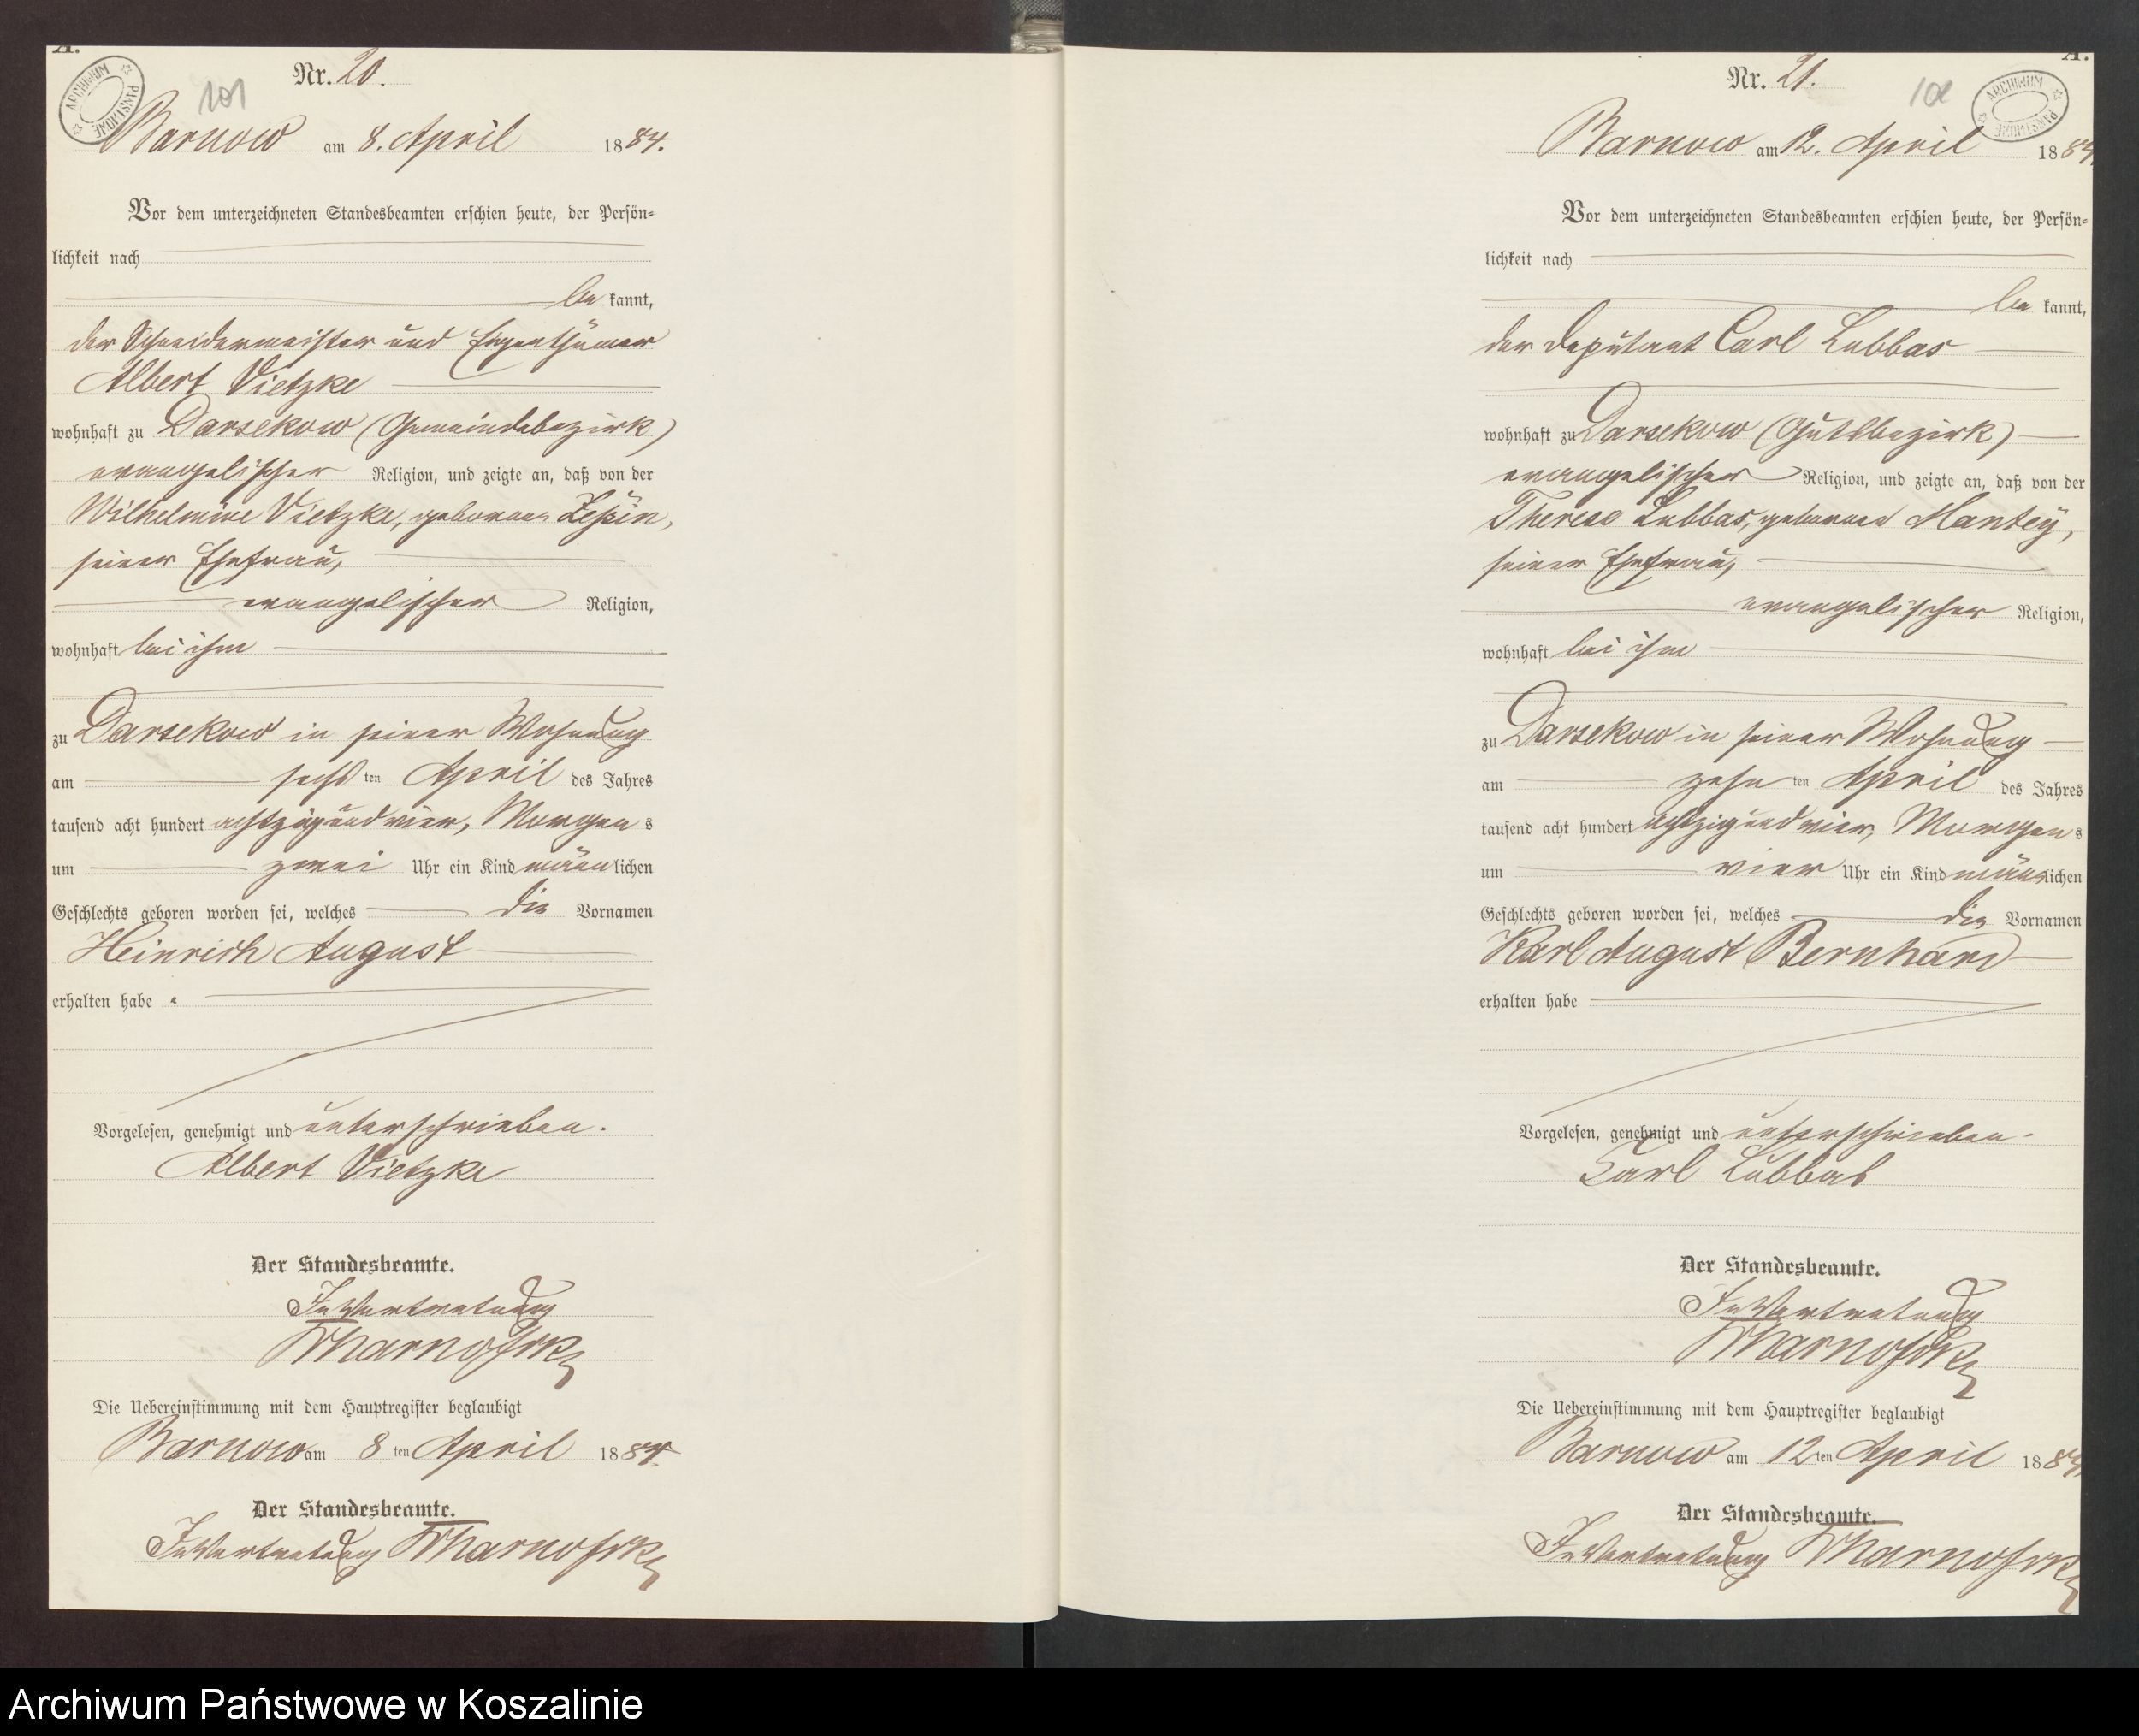 A.
ARCHIWUM PAŃSTWOWE
101
Nr. 20.
Barnow am 8. April 1884.
Vor dem unterzeichneten Standesbeamten erschien heute, der Persön-
lichkeit nach
be kannt,
der Schneidermeister und Eigenthümer
Albert Vietzke
wohnhaft zu Darsekow (Gemeindebezirk)
evangelischer Religion, und zeigte an, daß von der
Wilhelmine Vietzke, geborenen
seiner Ehefrau,
evangelischer Religion,
wohnhaft bei ihm
zu Darsekow in seiner Wohnung
am sechs ten April des Jahres
tausend acht hundert achtzig und vier, Morgen s
um zwei Uhr ein Kind männlichen
Geschlechts geboren worden sei, welches die Vornamen
Heinrich August
erhalten habe .
Vorgelesen, genehmigt und unterschrieben.
Albert Vietzke
Der Standesbeamte.
In Vertretung
Die Uebereinstimmung mit dem Hauptregister beglaubigt
Barnow am 8 ten April 1884.
Der Standesbeamte.
In Vertretung
A.
ARCHIWUM PAŃSTWOWE
102
Nr. 21.
Barnow am 12. April 1884
Vor dem unterzeichneten Standesbeamten erschien heute, der Persön-
lichkeit nach
be kannt,
der Deputant Carl Lubbas
wohnhaft zu Darsekow (Gutsbezirk)
evangelischer Religion, und zeigte an, daß von der
Therese Lubbas, geborenen Mantey,
seiner Ehefrau,
evangelischer Religion,
wohnhaft bei ihm
zu Darsekow in seiner Wohnung
am zehn ten April des Jahres
tausend acht hundert achtzig und vier, Morgen s
um vier Uhr ein Kind männlichen
Geschlechts geboren worden sei, welches die Vornamen
Karl August Bernhard
erhalten habe
Vorgelesen, genehmigt und unterschrieben.
Carl Lubbas
Der Standesbeamte.
In Vertretung
Die Uebereinstimmung mit dem Hauptregister beglaubigt
Barnow am 12 ten April 1884
Der Standesbeamte.
In Vertretung
Archiwum Państwowe w Koszalinie